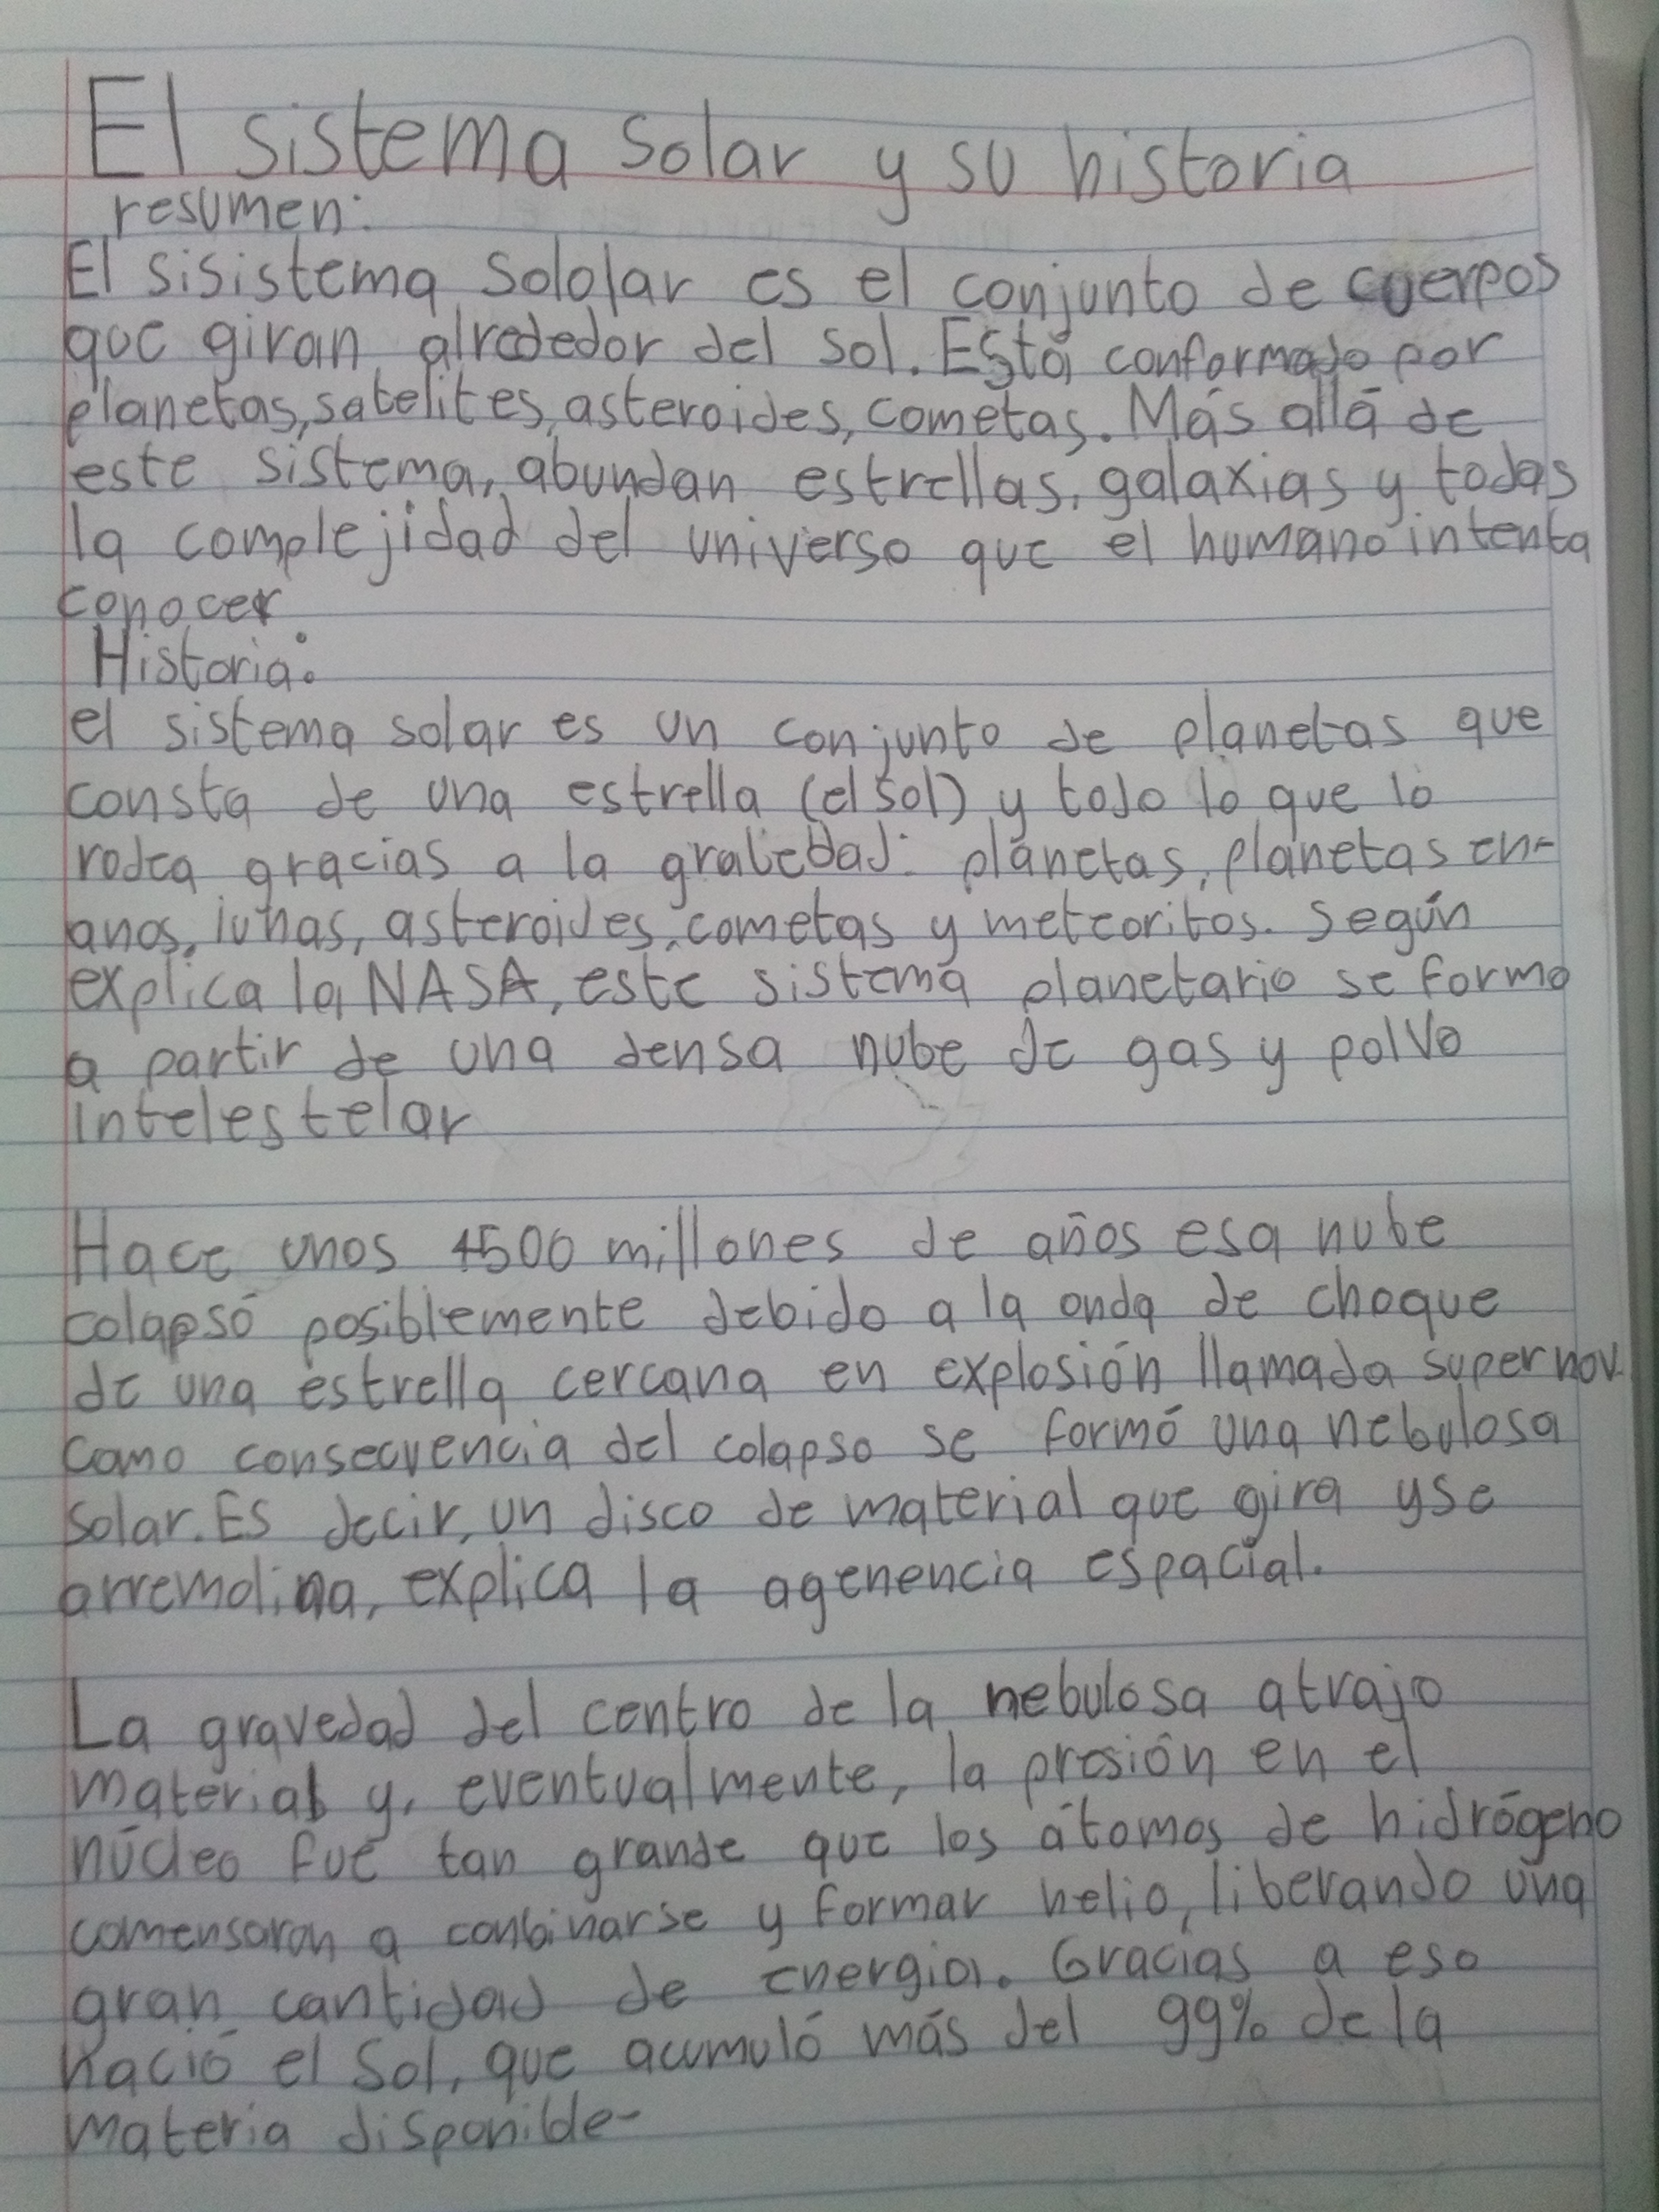 El sistema solar y su historia
resumen:
El sisistema Sololar es el conjunto de cuerpos
que giran alrededor del sol. Está conformado por
planetas, satelites, asteroides, cometas. Más allá de
este sistema, abundan estrellas, galaxias y todas
la complejidad del universo que el humano intenta
conocer
Historia:
el sistema solar es un conjunto de planetas que
consta de una estrella (el sol) y todo lo que lo
rodea gracias a la grabedad: planetas, planetas en-
anos, lunas, asteroides, cometas y meteoritos. Según
explica la NASA, este sistema planetario se formo
a partir de una densa nube de gas y polvo
intelestelar
Hace unos 4500 millones de años esa nube
colapsó posiblemente debido a la onda de choque
de una estrella cercana en explosión llamada supernov.
Como consecuencia del colapso se formó una nebulosa
solar. Es decir, un disco de material que gira y se
arremolina, explica la agenencia espacial.
La gravedad del centro de la nebulosa atrajo
material y, eventualmente, la presión en el
núcleo fue tan grande que los átomos de hidrógeno
comensaron a conbinarse y formar helio, liberando una
gran cantidad de energia. Gracias a eso
nació el Sol, que acumuló más del 99% de la
materia disponible-